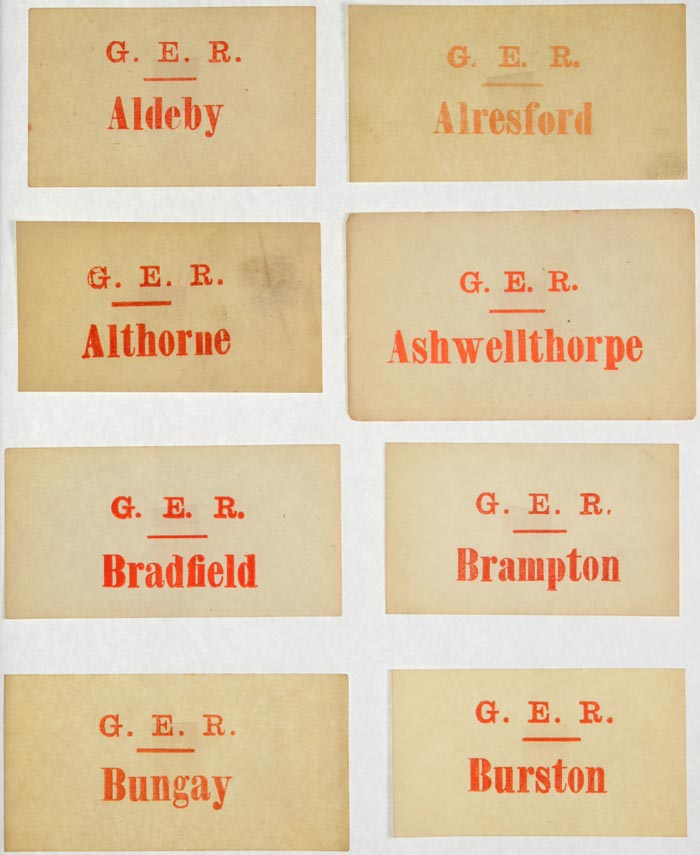 G. E. R.
Aldeby
G. E. R.
Alresford
G. E. R.
Althorne
G. E. R.
Ashwellthorpe
G. E. R.
Bradfield
G. E. R.
Brampton
G. E. R.
Bungay
G. E. R.
Burston